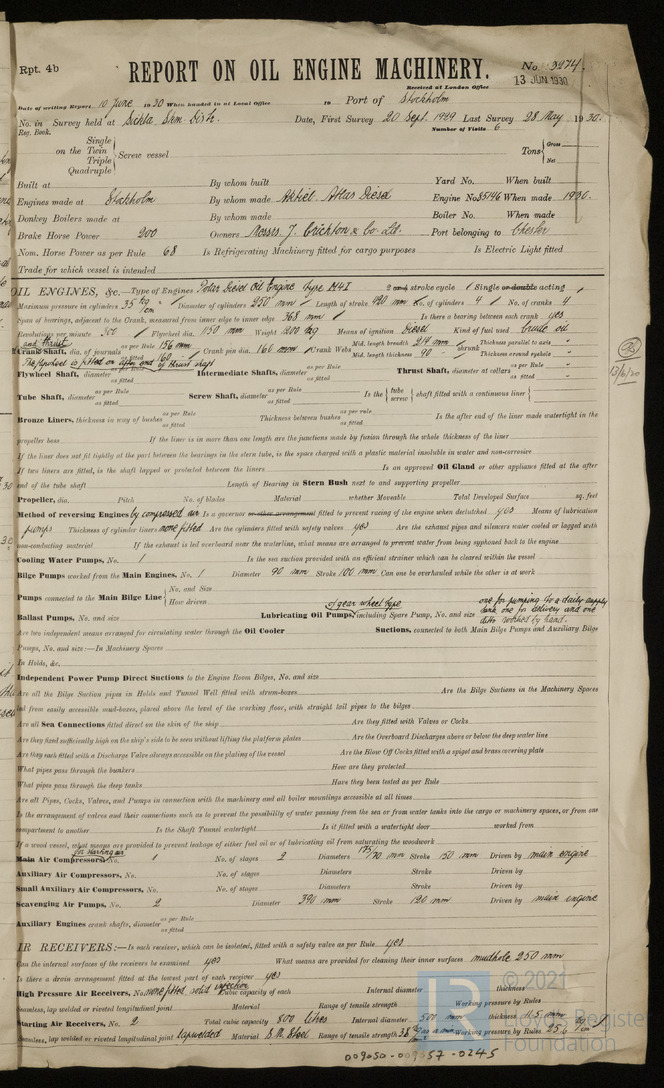 Rpt. 4b
REPORT ON OIL ENGINE MACHINERY.
No. 3274.
Received at London Office 13 JUN 1930
Date of writing Report 10 June 1930 When handed in at Local Office 19 Port of Stockholm
No. in Reg. Book. Survey held at Sickla Date, First Survey 20 Sept. 1929 Last Survey 28 May 1930.
Number of Visits 6
on the Single Twin Triple Quadruple Screw vessel Tons Gross Net
Built at By whom built Yard No. When built
Engines made at Stockholm By whom made Aktieb. Atlas Diesel Engine No. 35146 When made 1930.
Donkey Boilers made at By whom made Boiler No. When made
Brake Horse Power 200 Owners Messrs. J. Crichton & Co. Ltd. Port belonging to Chester
Nom. Horse Power as per Rule 68 Is Refrigerating Machinery fitted for cargo purposes Is Electric Light fitted
Trade for which vessel is intended
OIL ENGINES, &c.—Type of Engines Polar Diesel Oil Engine Type M4I 2 or 4 stroke cycle Single or double acting
Maximum pressure in cylinders 35 kg/cm² Diameter of cylinders 250 mm Length of stroke 420 mm No. of cylinders 4 No. of cranks 4
Span of bearings, adjacent to the Crank, measured from inner edge to inner edge 368 mm Is there a bearing between each crank yes
Revolutions per minute 300 Flywheel dia. 1150 mm Weight 1200 kg Means of ignition Diesel Kind of fuel used Crude oil
and thrust
Crank Shaft, dia. of journals as per Rule 156 mm as fitted 160 Crank pin dia. 160 mm Crank Webs Mid. length breadth 214 mm Mid. length thickness 90 shrunk Thickness parallel to axis Thickness around eyehole
The flywheel is fitted on after end of thrust shaft
Flywheel Shaft, diameter as per Rule as fitted Intermediate Shafts, diameter as per Rule as fitted Thrust Shaft, diameter at collars as per Rule as fitted
Tube Shaft, diameter as per Rule as fitted Screw Shaft, diameter as per Rule as fitted Is the tube screw shaft fitted with a continuous liner
Bronze Liners, thickness in way of bushes as per Rule as fitted Thickness between bushes as per rule as fitted Is the after end of the liner made watertight in the
propeller boss If the liner is in more than one length are the junctions made by fusion through the whole thickness of the liner
If the liner does not fit tightly at the part between the bearings in the stern tube, is the space charged with a plastic material insoluble in water and non-corrosive
If two liners are fitted, is the shaft lapped or protected between the liners Is an approved Oil Gland or other appliance fitted at the after
end of the tube shaft Length of Bearing in Stern Bush next to and supporting propeller
Propeller, dia. Pitch No. of blades Material whether Moveable Total Developed Surface sq. feet
Method of reversing Engines by compressed air Is a governor or other arrangement fitted to prevent racing of the engine when declutched yes Means of lubrication
pumps Thickness of cylinder liners none fitted Are the cylinders fitted with safety valves yes Are the exhaust pipes and silencers water cooled or lagged with
non-conducting material If the exhaust is led overboard near the waterline, what means are arranged to prevent water from being syphoned back to the engine
Cooling Water Pumps, No. 1 Is the sea suction provided with an efficient strainer which can be cleared within the vessel
Bilge Pumps worked from the Main Engines, No. 1 Diameter 90 mm Stroke 100 mm Can one be overhauled while the other is at work
Pumps connected to the Main Bilge Line No. and Size How driven
of gear wheel type one for pumping to a daily supply tank one for delivery and one ditto worked by hand.
Ballast Pumps, No. and size Lubricating Oil Pumps, including Spare Pump, No. and size
Are two independent means arranged for circulating water through the Oil Cooler Suctions, connected to both Main Bilge Pumps and Auxiliary Bilge
Pumps, No. and size:—In Machinery Spaces
In Holds, &c.
Independent Power Pump Direct Suctions to the Engine Room Bilges, No. and size
Are all the Bilge Suction pipes in Holds and Tunnel Well fitted with strum-boxes Are the Bilge Suctions in the Machinery Spaces
led from easily accessible mud-boxes, placed above the level of the working floor, with straight tail pipes to the bilges
Are all Sea Connections fitted direct on the skin of the ship Are they fitted with Valves or Cocks
Are they fixed sufficiently high on the ship's side to be seen without lifting the platform plates Are the Overboard Discharges above or below the deep water line
Are they each fitted with a Discharge Valve always accessible on the plating of the vessel Are the Blow Off Cocks fitted with a spigot and brass covering plate
What pipes pass through the bunkers How are they protected
What pipes pass through the deep tanks Have they been tested as per Rule
Are all Pipes, Cocks, Valves, and Pumps in connection with the machinery and all boiler mountings accessible at all times
Is the arrangement of valves and their connections such as to prevent the possibility of water passing from the sea or from water tanks into the cargo or machinery spaces, or from one
compartment to another Is the Shaft Tunnel watertight Is it fitted with a watertight door worked from
If a wood vessel, what means are provided to prevent leakage of either fuel oil or of lubricating oil from saturating the woodwork
for starting air
Main Air Compressors, No. 1 No. of stages 2 Diameters 175/70 mm Stroke 150 mm Driven by main engine
Auxiliary Air Compressors, No. No. of stages Diameters Stroke Driven by
Small Auxiliary Air Compressors, No. No. of stages Diameters Stroke Driven by
Scavenging Air Pumps, No. 2 Diameter 390 mm Stroke 120 mm Driven by main engine
Auxiliary Engines crank shafts, diameter as per Rule as fitted
IR RECEIVERS:—Is each receiver, which can be isolated, fitted with a safety valve as per Rule yes
Can the internal surfaces of the receivers be examined yes What means are provided for cleaning their inner surfaces mudhole 250 mm
Is there a drain arrangement fitted at the lowest part of each receiver yes
High Pressure Air Receivers, No. none fitted solid injection Cubic capacity of each Internal diameter thickness
Seamless, lap welded or riveted longitudinal joint Material Range of tensile strength Working pressure by Rules
Starting Air Receivers, No. 2 Total cubic capacity 800 litres Internal diameter 500 mm thickness 11.5 mm
Seamless, lap welded or riveted longitudinal joint lapwelded Material S.M. Steel Range of tensile strength Working pressure by Rules 25.6
009050-009057-0245
© 2021
Lloyd's Register
Foundation